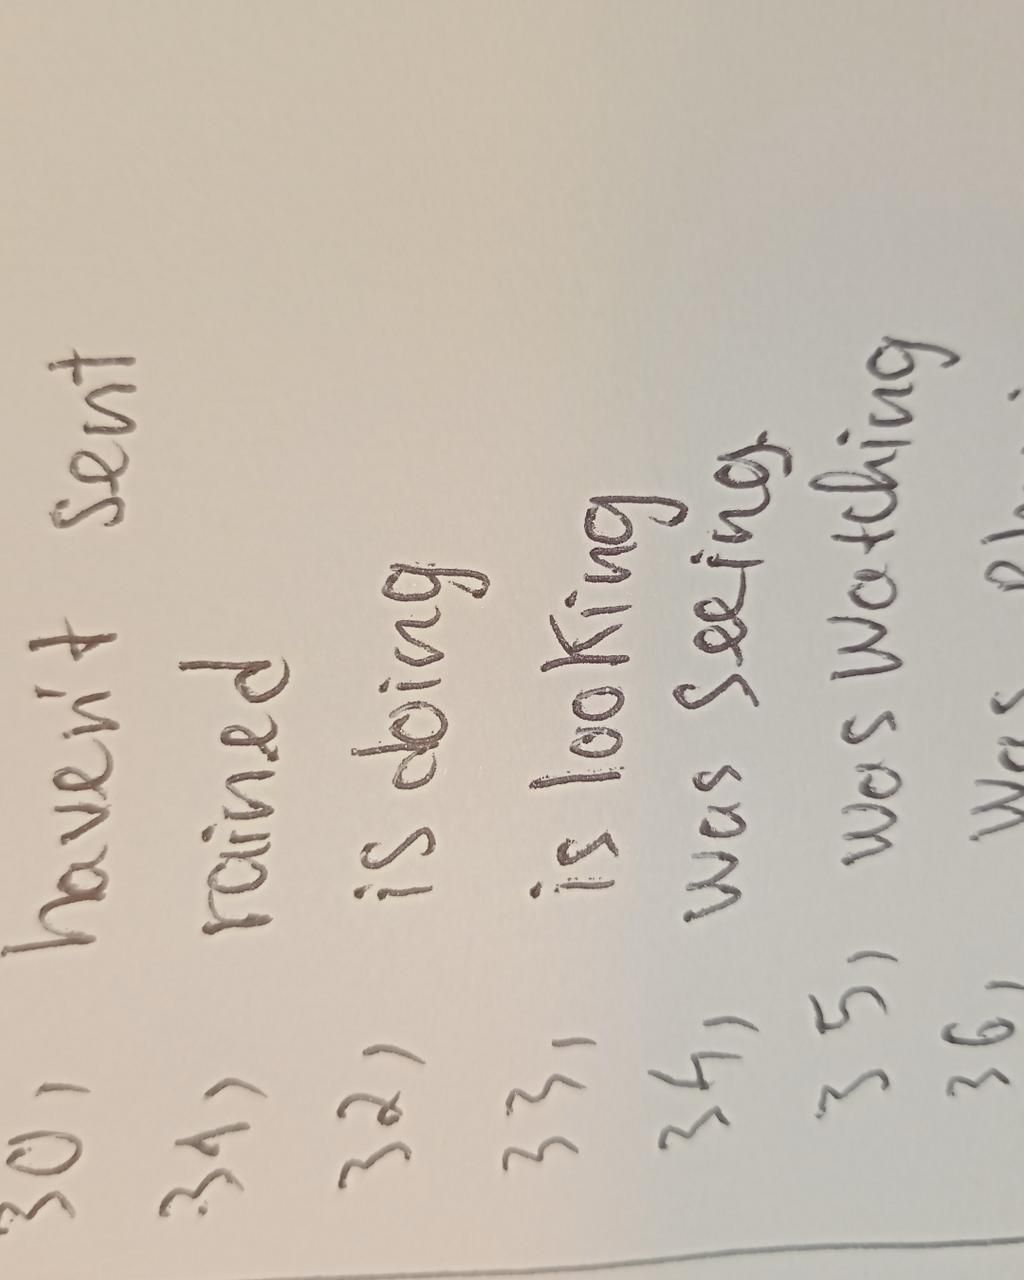 30, haven't sent
31, rained
32, is doing
33, is looking
34, was seeing
35, was watching
36, was